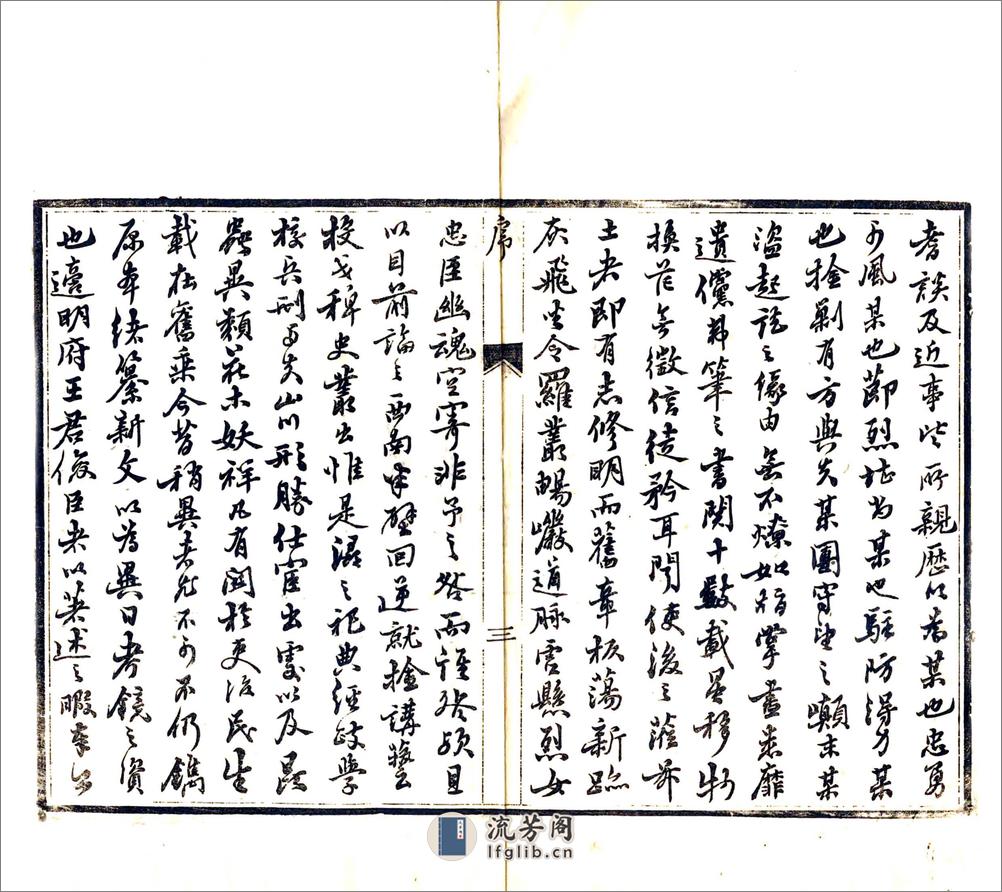 耆談及近事皆所親歷以爲某也忠勇
可風某也節烈堪爲某也駐防得力某
也擒剿有方與夫某團守望之顚末某
盜起訖之緣由無不燎如指掌晝悉靡
遺儻弗筆之書閱十數載星移物
換茫無徵信徒矜耳聞使後之蒞茲
土者即有志修明而舊章板蕩新蹟
灰飛坐令羅叢暢巖道脉雲懸烈女
序
三
忠臣幽魂空寄非予之咎而誰咎頋且
以目前論之西南半壁回逆就擒講藝
投戈稗史叢出惟是濕之祀典經歧學
校兵刑與夫山川形勝仕宦出處以及昆
蟲異類花木妖祥凡有関於吏治民生
載在舊乘今昔稍異者允不可不仍鐫
原本續纂新文以爲異日考鏡之資
也適明府王君俊臣者以著述之暇奉公
流芳阁
lfglib.cn